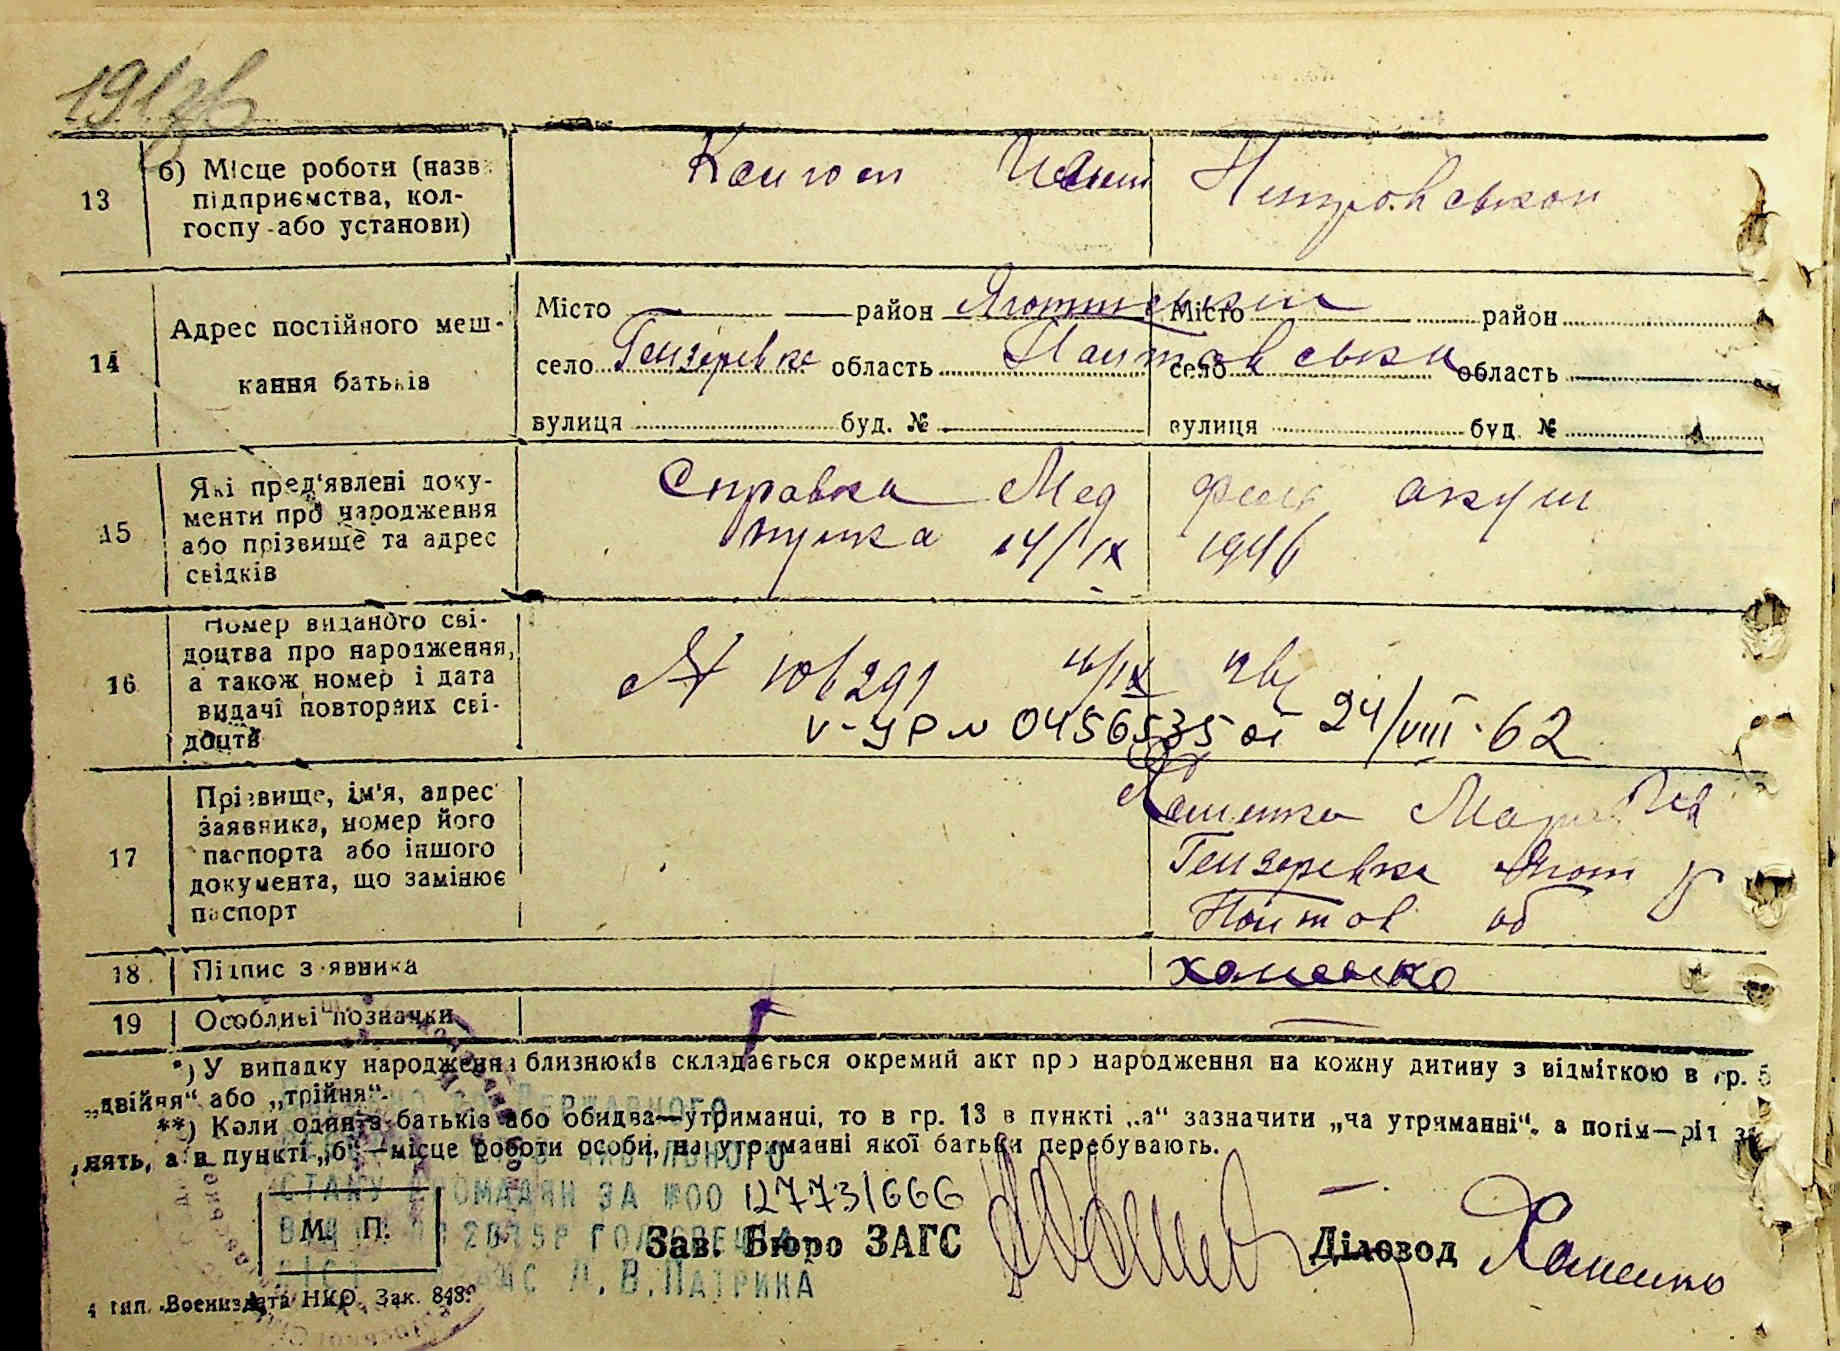 1946
13
б) Місце роботи (назв
підприємства, кол-
госпу або установи)
Колгосп Петровского
14
Адрес постійного меш-
кання батьків
Місто район Яготинський
село Гензеровка область Полтавська
вулиця буд. №
Місто район
село область
вулиця буд. №
15
Які пред'явлені доку-
менти про народження
або прізвище та адрес
свідків
Справка Мед фель акуш
пункта 14/IX 1946
16
Номер виданого сві-
доцтва про народження,
а також номер і дата
видачі повторних сві-
доцтв
106291
V-УР № 0456535 от 24/VIII-62
17
Прізвище, ім'я, адрес
заявника, номер його
паспорта або іншого
документа, що замінює
паспорт
Хоменко
Гензеровка Ягот р
Полтав об
18
Підпис заявника
Хоменко
19
Особливі позначки
*) У випадку народження близнюків складається окремий акт про народження на кожну дитину з відміткою в гр. 5
„двійня“ або „трійня“.
**) Коли один з батьків або обидва—утриманці, то в гр. 13 в пункті „а“ зазначити „на утриманні“, а потім—рід за
нять, а в пункті „б“—місце роботи особи, на утриманні якої батьки перебувають.
ДЕРЖАВНОГО
ЦИВІЛЬНОГО
СТАНУ ГРОМАДЯН ЗА №00 127731666
М. П.
Зав. Бюро ЗАГС
Діловод Хоменко
Л.В.ПАТРИНА
4 тип. Воениздата НКО. Зак. 848